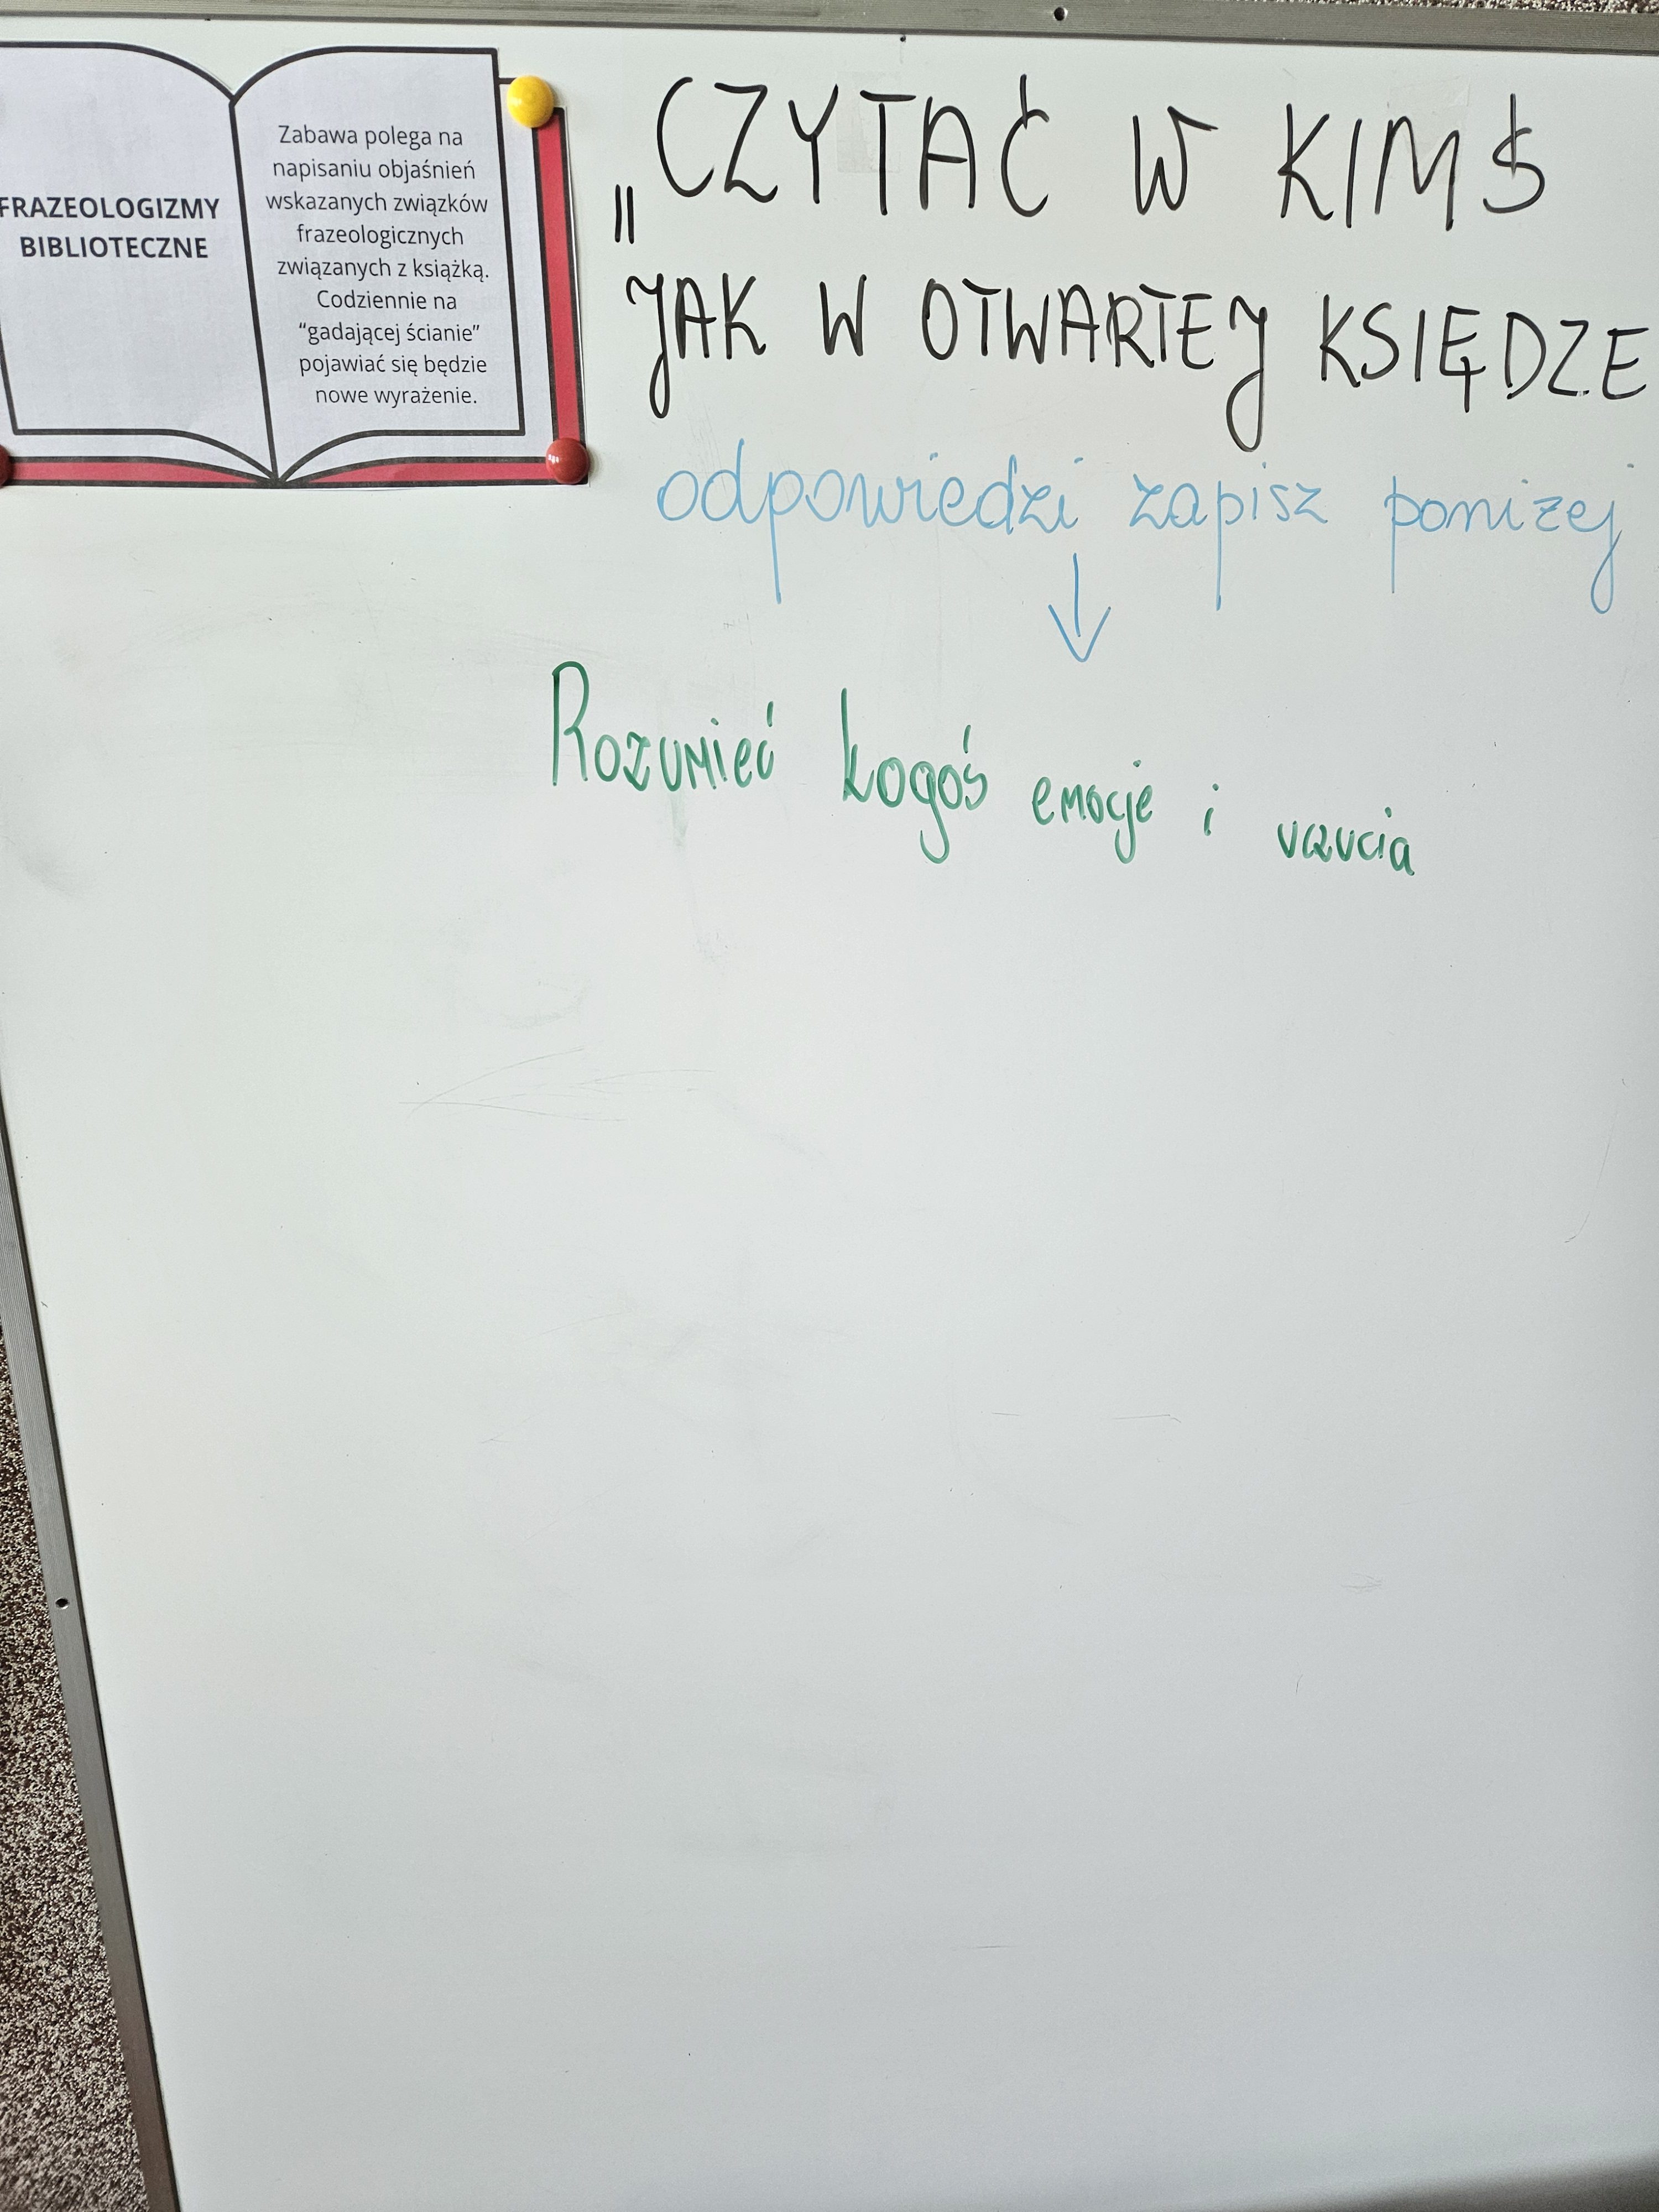 FRAZEOLOGIZMY
BIBLIOTECZNE
Zabawa polega na
napisaniu objaśnień
wskazanych związków
frazeologicznych
związanych z książką.
Codziennie na
“gadającej ścianie”
pojawiać się będzie
nowe wyrażenie.
„CZYTAĆ W KIMŚ
JAK W OTWARTEJ KSIĘDZE
odpowiedzi zapisz poniżej
Rozumieć kogoś emocje i uczucia